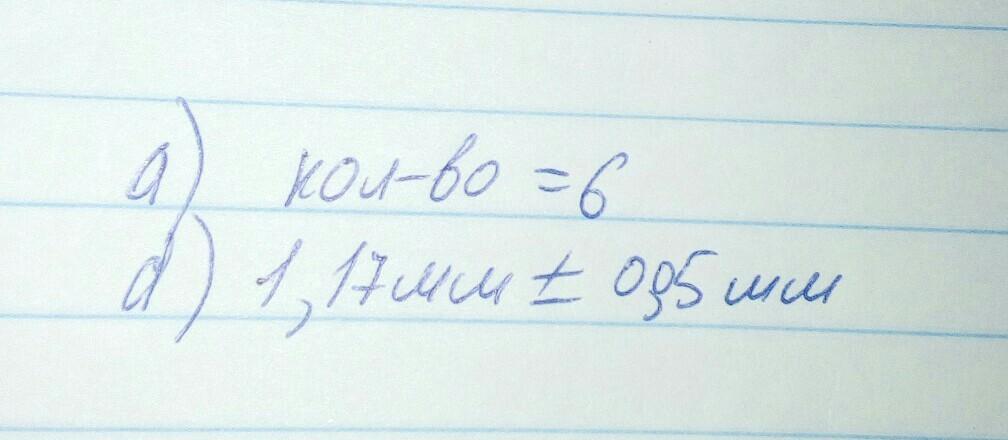 а) кол-во = 6
d) 1,17мм ± 0,5 мм